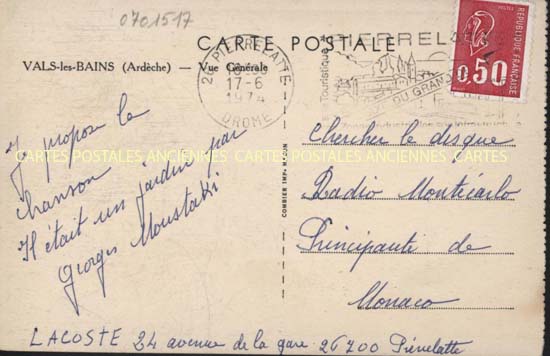 0701517
CARTE POSTALE
VALS-les-BAINS (Ardèche) — Vue Générale
26 PIERRELATTE
17-6
1974
DROME
PIERRELATTE
Touristique
DU GRAND
REPUBLIQUE FRANÇAISE
0,50
COMBIER IMP. MACON
CARTES POSTALES ANCIENNES CARTES POSTALES ANCIENNES CARTES POSTALES ANCIENNES
J propose la
chanson
Il était un jardin par
Georges Moustaki
Chercher le disque
Radio Montécarlo
Principauti de
Monaco
LACOSTE 24 avenue de la gare 26700 Piérrelatte